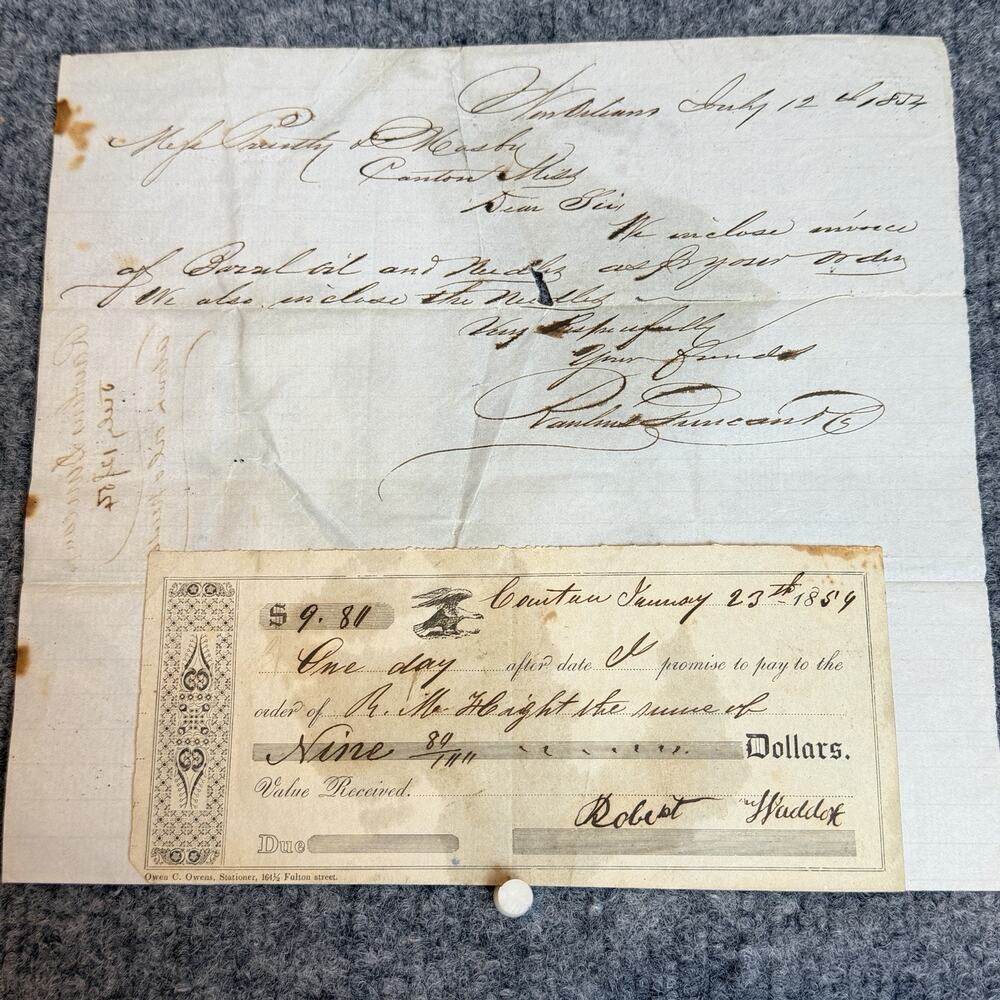 New Orleans July 12th 1854
Mess Prestty & Mosby
Canton Miss
Dear Sir
We inclose invoice
of Barrel oil and Needles as pr your order
We also inclose the Needles
Very Respectfully
Your friends
Duncan & Co
July 12/54
$ 9.80
Canton January 23th 1859
One day after date I promise to pay to the
order of R. M. Haight the sume of
Nine 80/100 Dollars.
Value Received.
Robert Haddox
Due
Owen C. Owens, Stationer, 164½ Fulton street.